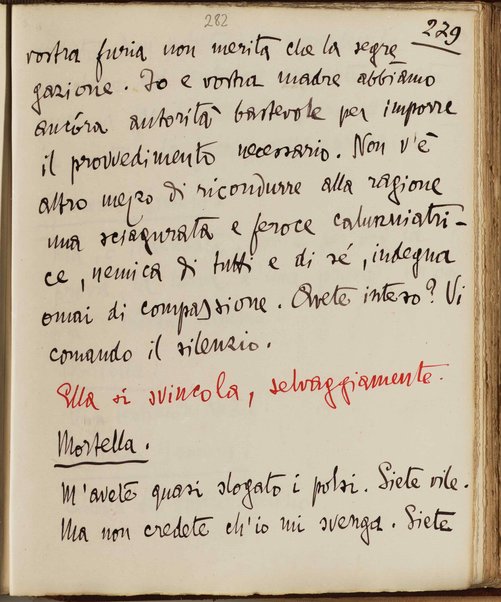 282
229
vostra furia non merita che la segre
gazione. Io e vostra madre abbiamo
ancóra autorità bastevole per imporre
il provvedimento necessario. Non v'è
altro mezzo di ricondurre alla ragione
una sciagurata e feroce calunniatri-
ce, nemica di tutti e di sé, indegna
omai di compassione. Avete inteso? Vi
comando il silenzio.
Ella si svincola, selvaggiamente.
Mortella.
M'avete quasi slogato i polsi. Siete vile.
Ma non credete ch'io mi svenga. Siete